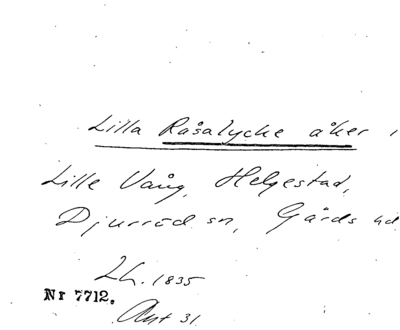 Lilla Råsalycke åker i
Lille Vång, Helgestad,
Djurröd sn, Gärds hd
Lh. 1835
Nr 7712.
Akt 31.